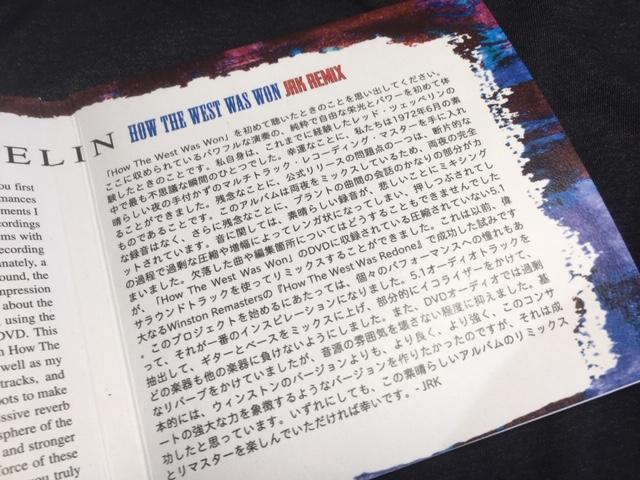 ELIN
HOW THE WEST WAS WON JRK REMIX
「How The West Was Won」を初めて聴いたときのことを思い出してください。
ここに収められているパワフルな演奏の、純粋で自由な栄光とパワーを初めて体
験したときのことです。私自身は、これまでに経験したレッド・ツェッペリンの
中で最も不思議な瞬間のひとつでした。幸運なことに、私たちは1972年6月の素
晴らしい夜の手付かずのマルチトラック・レコーディング・マスターを手に入れ
ることができました。残念なことに、公式リリースの問題点の一つは、断片的な
ものであることです。このアルバムは両夜をミックスしているため、両夜の完全
な録音はなく、さらに残念なことに、プラントの曲間の会話のかなりの部分がカ
ットされています。音に関しては、素晴らしい録音が、悲しいことにミキシング
の過程で過剰な圧縮や増幅によってレンガ状になってしまい、押しつぶされてし
まいました。欠落した曲や編集箇所についてはどうすることもできませんでした
が、「How The West Was Won」のDVDに収録されている圧縮されていない5.1
サラウンドトラックを使ってリミックスすることができました。これは以前、偉
大なるWinston Remastersの『How The West Was Redone』で成功した試みです
。このプロジェクトを始めるにあたっては、個々のパフォーマンスへの憧れもあ
って、それが一番のインスピレーションになりました。5.1オーディオトラックを
抽出して、ギターとベースをミックスに上げ、部分的にイコライザーをかけて、
どの楽器も他の楽器に負けないようにしました。また、DVDオーディオでは過剰
なリバーブをかけていましたが、音源の雰囲気を壊さない程度に抑えました。基
本的には、ウィンストンのバージョンよりも、より良く、より強く、このコンサ
ートの強大な力を象徴するようなバージョンを作りたかったのですが、それは成
功したと思っています。いずれにしても、この素晴らしいアルバムのリミックス
とリマスターを楽しんでいただければ幸いです。- JRK
ou first
mances
ments I
cordings
ms with
recording
nately, a
ound, the
mpression
about the
using the
DVD. This
n How The
well as my
tracks, and
oots to make
ssive reverb
sphere of the
and stronger
force of these
you truly